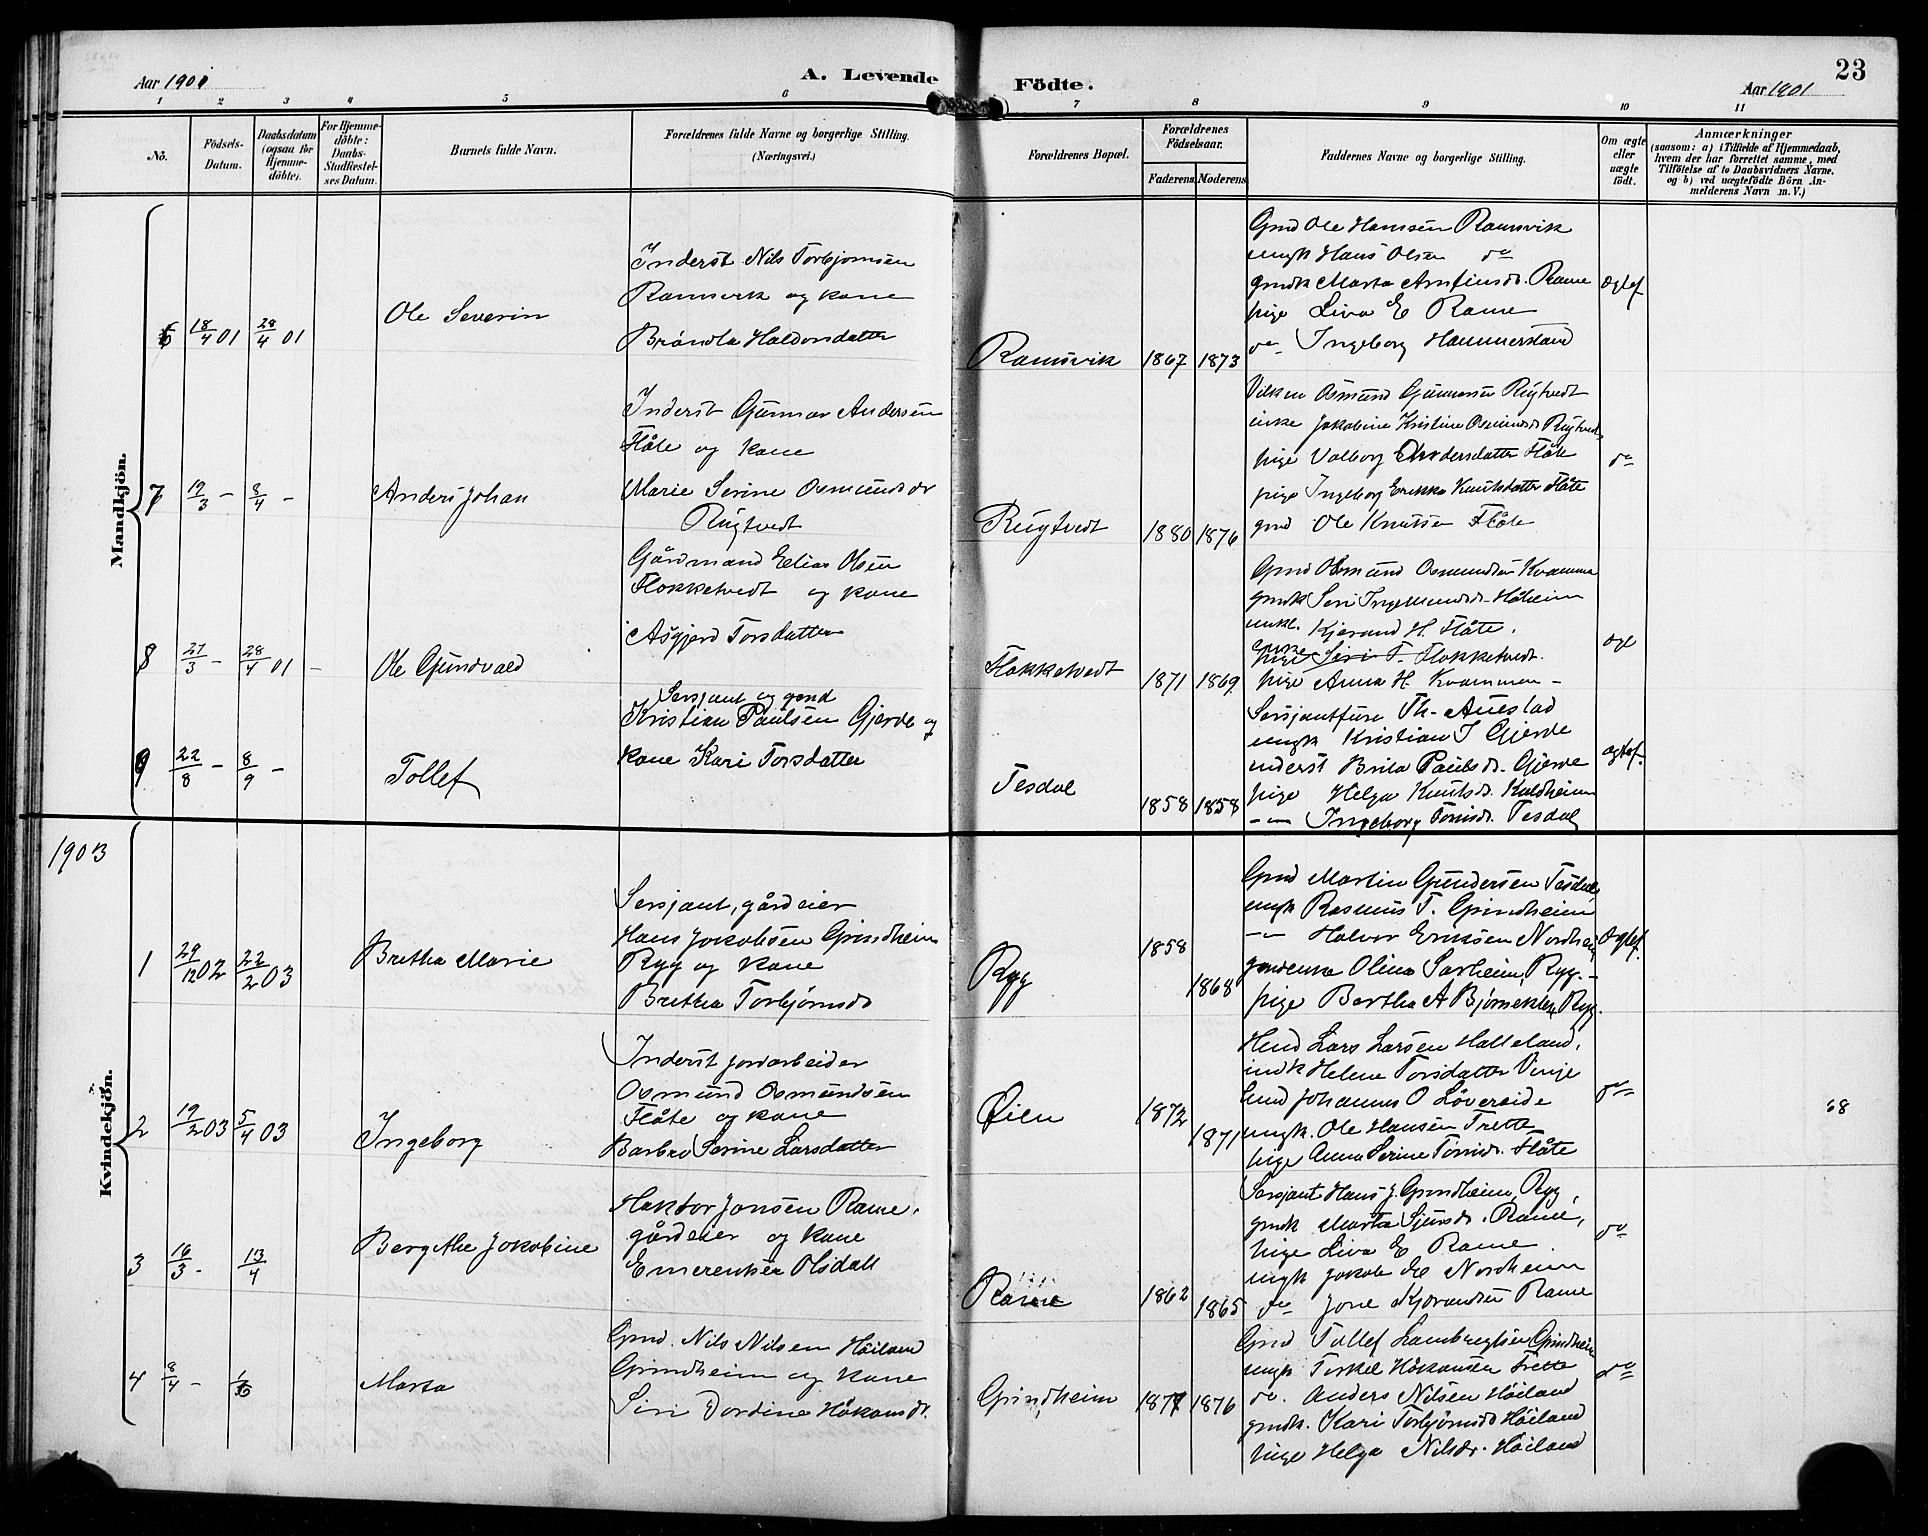 23
Aar 1901 A. Levende Födte. Aar 1901
1 2 3 4 5 6 7 8 9 10 11
No.
Födsels-
Datum.
Daabsdatum
(ogsaa for
Hjemme-
döbte).
For Hjemme-
döbte:
Daabs-
Stadfæstel-
ses Datum.
Barnets fulde Navn.
Forældrenes fulde Navne og borgerlige Stilling.
(Næringsvei.)
Forældrenes Bopæl.
Forældrenes
Födselsaar.
Faderens. Moderens.
Faddernes Navne og borgerlige Stilling.
Om ægte
eller
uægte
födt.
Anmærkninger
(saasom: a) i Tilfælde af Hjemmedaab,
hvem der har forrettet samme, med
Tilföielse af to Daabsvidners Navne.
og b) ved uægtefödte Börn An-
melderens Navn m. V.)
Mandkjön.
6 18/4 01 28/4 01
Ole Severin
Inderst Nils Torbjørnsen
Ramsvik og kone
Brøndla Haldorsdatter
Ramsvik 1867 1873
Gmd Ole Hansen Ramsvik
ungk Hans Olsen do
gmdk Marta Arnfinsd. Rame
pige Liva E Rame
do Ingeborg Hammerstand
ogtef
7 19/3 - 8/4 -
Anders Johan
Inderst Gunnar Andersen
Flåte og kone
Marie Serine Osmundsdr
Rugtvedt
Rugtvedt 1880 1876
Osmund Gunnarsen Rugtvedt
enke Jakobine Kristine Osmundsd Rugtvedt
pige Valborg Andersdatter Flåte
pige Ingeborg Erikka Knutsdatter Flåte
gmd Ole Knutsen Flåte
do
8 27/3 - 28/4 01 -
Ole Gundvald
Gårdmand Elias Olsen
Flokketvedt og kone
Asgjerd Torsdatter
Flokketvedt 1871 1869
Gmd Osmund Osmundsen Kvamme
gmdk Seri Ingemundsd. Håheim
unkl. Kjerand H. Flåte.
pige Siri T. Flokketvedt.
pige Anna H. Kvammen -
9 22/8 - 8/9 -
Tollef
Sersjant og gmd
Kristian Paulsen Gjerde og
kone Kari Torsdatter
Tesdal 1858 1858
Sersjantfure Th. Auestad
ungk Kristian J Gjerde
inderst Brita Paulsd. Gjerde
pige Helga Knutsd. Kaldheim
-"- Ingeborg Tønnisd. Tesdal
ogtef.
1903
Kvindekjön.
1 29/12 02 22/2 03
Bretha Marie
Sersjant, gårdeier
Hans Jakobsen Grindheim
Ryg og kone
Bretha Torbjørnsd
Ryg 1858 1868
Gmd Martin Gundersen Tesdal,
ungk Rasmus T. Grindheim
-"- Halvor Eriksen Nordheim
gmdenke Olina Sørheim, Ryg.-
pige Bertha A Bjørneklett Ryg.
Ogtef.
2 19/2 03 5/4 03
Ingeborg
Inderst jordarbeider
Osmund Osmundsen
Flåte og kone
Barbro Serine Larsdatter
Øien 1872 1871
Hmd Lars Larsen Halleland,
indk Helene Torsdatter Vinje
hmd Johannes O Løvereide
ungk. Ole Hansen Trette
pige Anna Serine Tønnisd. Flåte
do
68
3 16/3 - 13/4
Bergithe Jakobine
Haktor Jonsen Rame,
gårdeier og kone
Emerentse Olsdatt
Rame 1862 1865
Sersjant Hans J. Grindheim, Ryg,
gmdk Marta Sjursd. Rame,
pige Liva E Rame.
ungk Jakob H Nordheim
do Jone Kjerandsen Rame
do
4 8/4 -
Marta
Gmd. Nils Nilsen Høiland
Grindheim og kone
Siri Dordine Håkonsdr.
Grindheim 1877 1876
Gmd Tollef Lambregtsen Grindheim
ungk Torkel Håkonsen Trette
do. Anders Nilsen Høiland
gmdk. Kari Torbjørnsd Høiland
pige Helga Nilsdr. Høiland
do